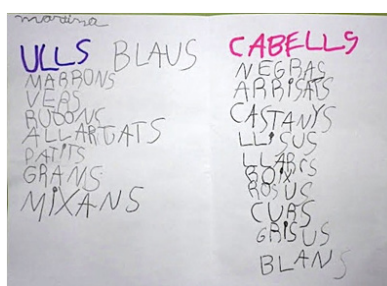 martina
ULLS BLAUS
MARRONS
VERS
RUDONS
ALLARGATS
PATITS
GRANS
MIXANS
CABELLS
NEGRAS
ARRISATS
CASTANYS
LLISUS
LLARCS
ROIX
ROSUS
CURS
GRISUS
BLANS